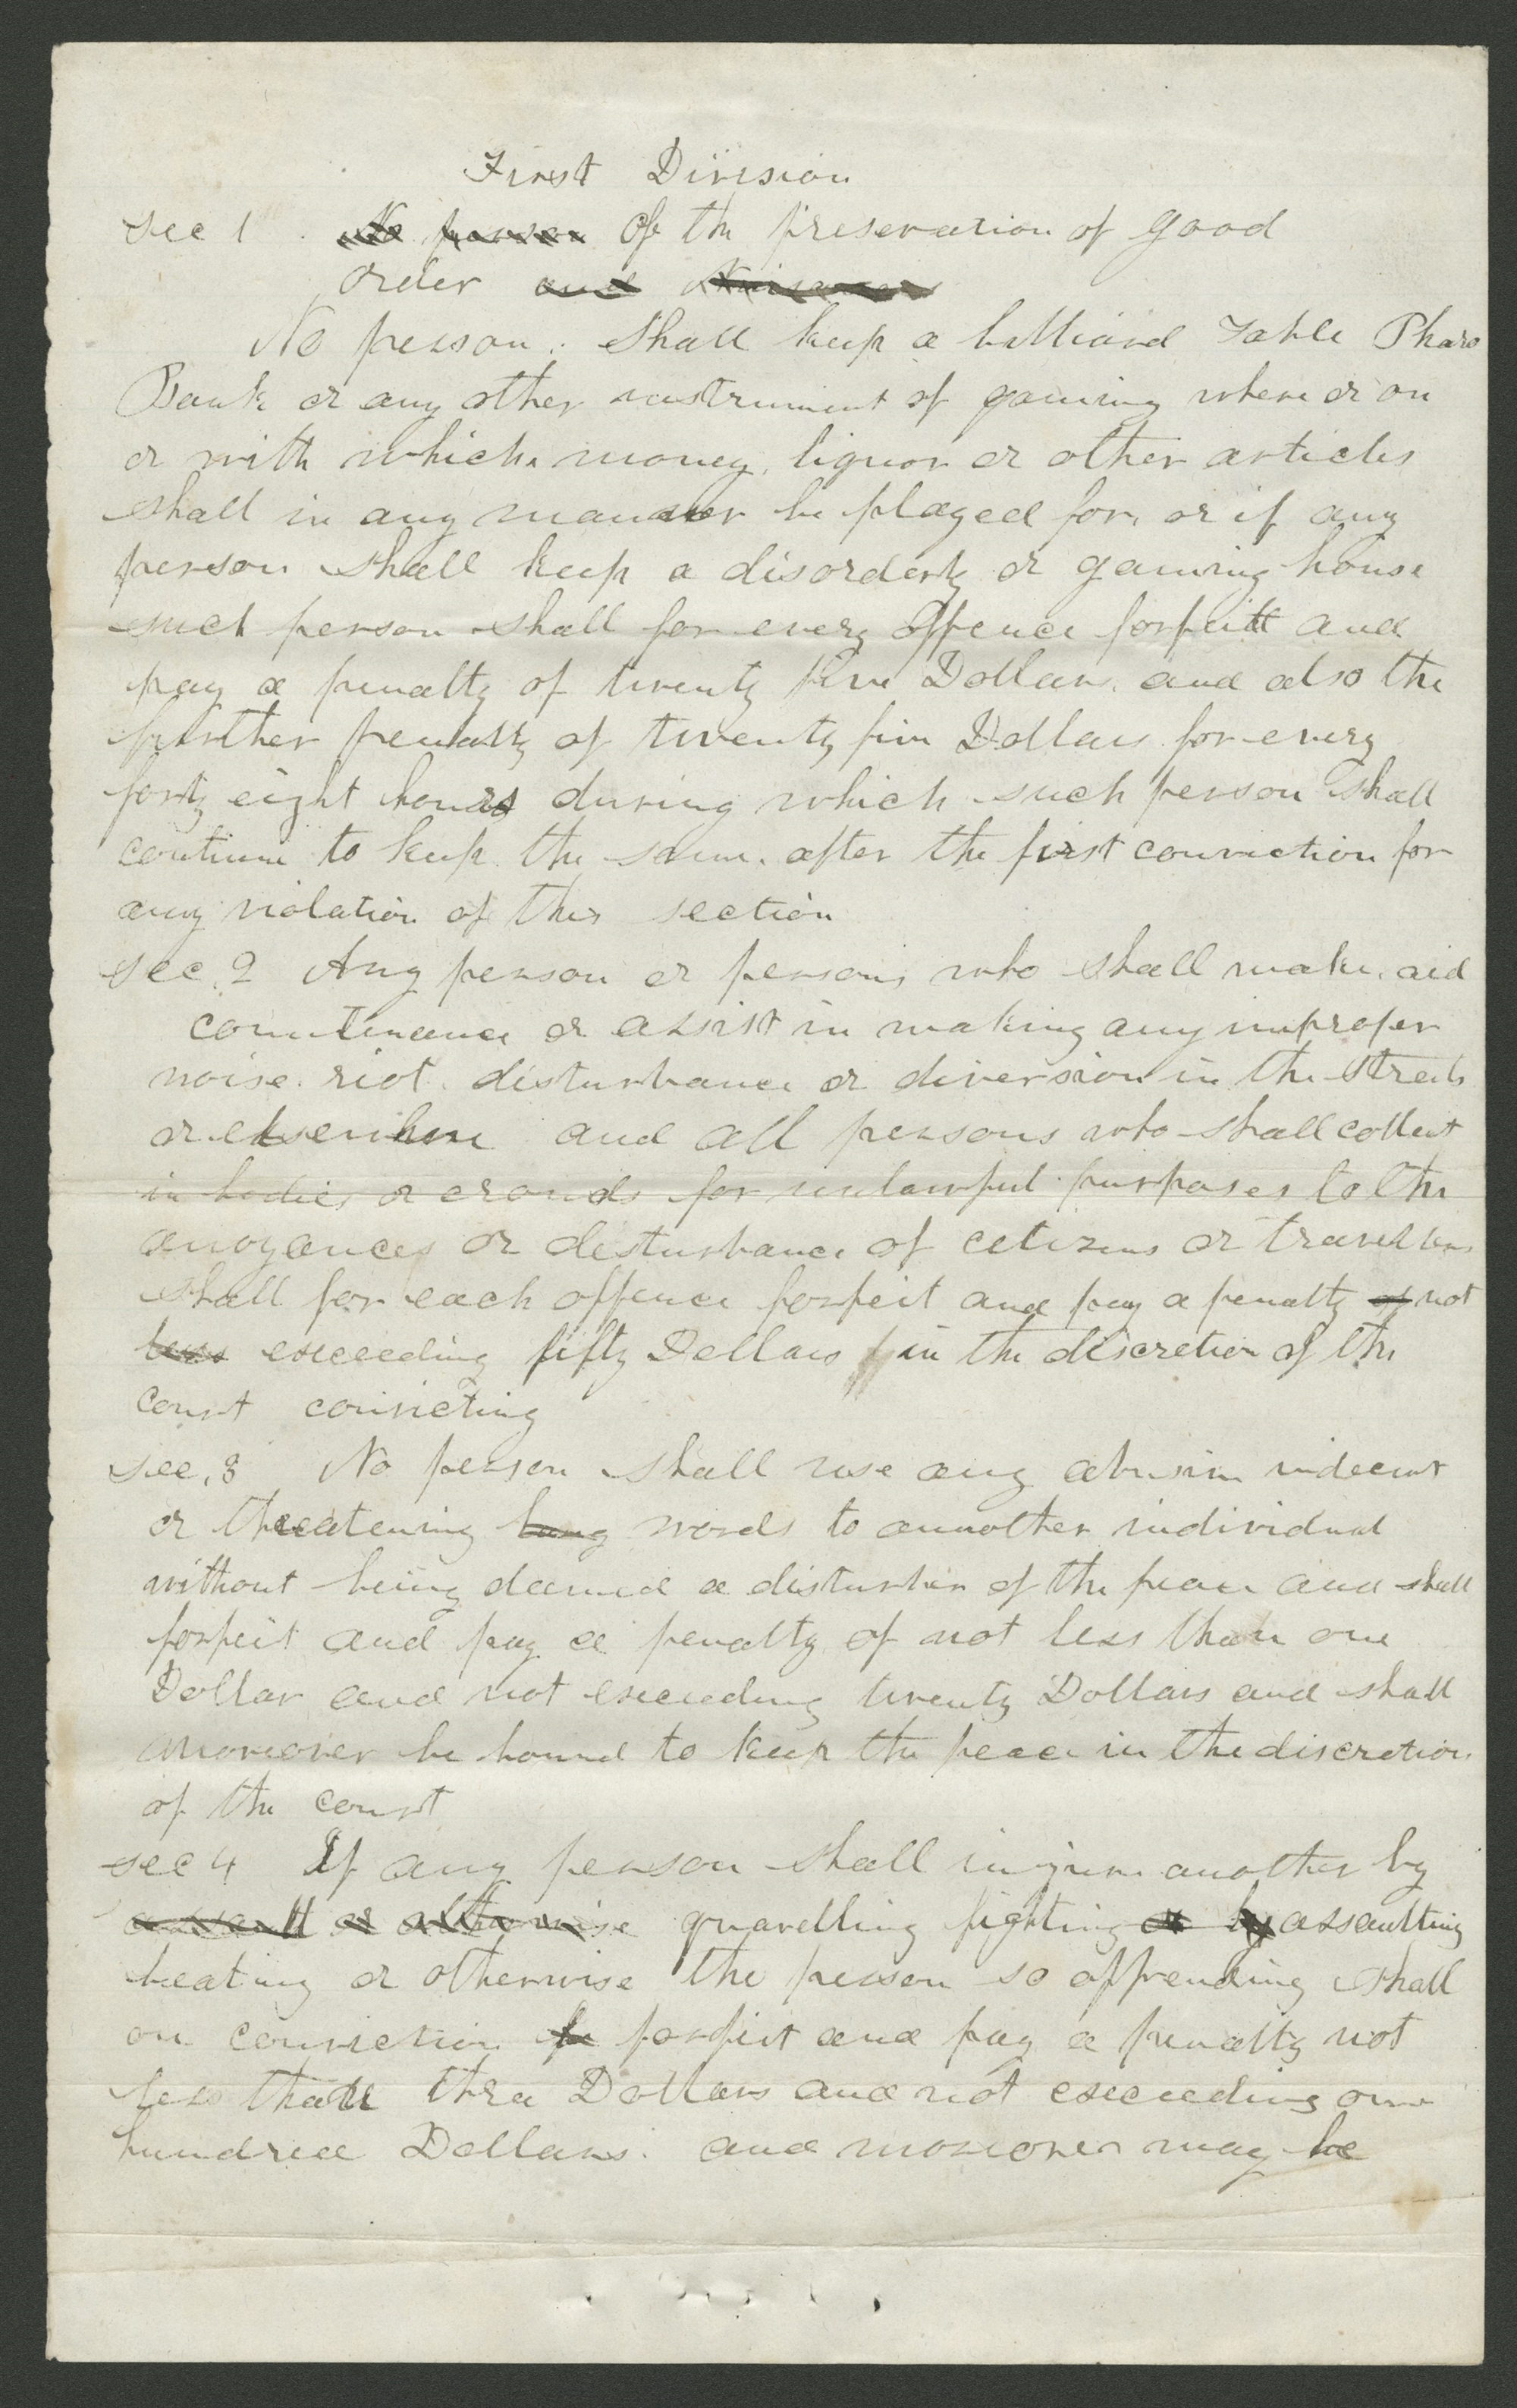 First Division
Sec 1 No person Of the preservation of good
order and Nuisances
No person shall keep a billiard Table Pharo
Bank or any other instrument of gaming where or on
or with which money, liquor or other articles
shall in any manner be played for, or if any
person shall keep a disorderly or gaming house
such person shall for every offence forfeitt and
pay a penalty of twenty five Dollars, and also the
further penalty of twenty five Dollars for every
forty eight hours during which such person shall
continue to keep the same, after the first conviction for
any violation of this section
Sec. 2 Any person or persons who shall make, aid
countenance or assist in making any improper
noise. riot. disturbance or diversion in the Streets
or elsewhere and all persons who shall collect
in bodies or crowds for unlawful purposes to the
anoyances or disturbance of citizens or travellers
shall for each offence forfeit and pay a penalty of not
less exceeding fifty Dollars in the discretion of the
court convicting
Sec. 3 No person shall use any abusive indecent
or threatening lang words to annother individual
without being deemed a disturber of the peace and shall
forfeit and pay a penalty of not less than one
Dollar and not exceeding twenty Dollars and shall
moreover be bound to keep the peace in the discretion
of the court
Sec 4 If any person shall injure another by
assault or otherwise quarelling fighting or by assaulting
beating or otherwise the person so offending shall
on conviction forfeit and pay a penalty not
less than three Dollars and not exceeding one
hundred Dollars. and moreover may be